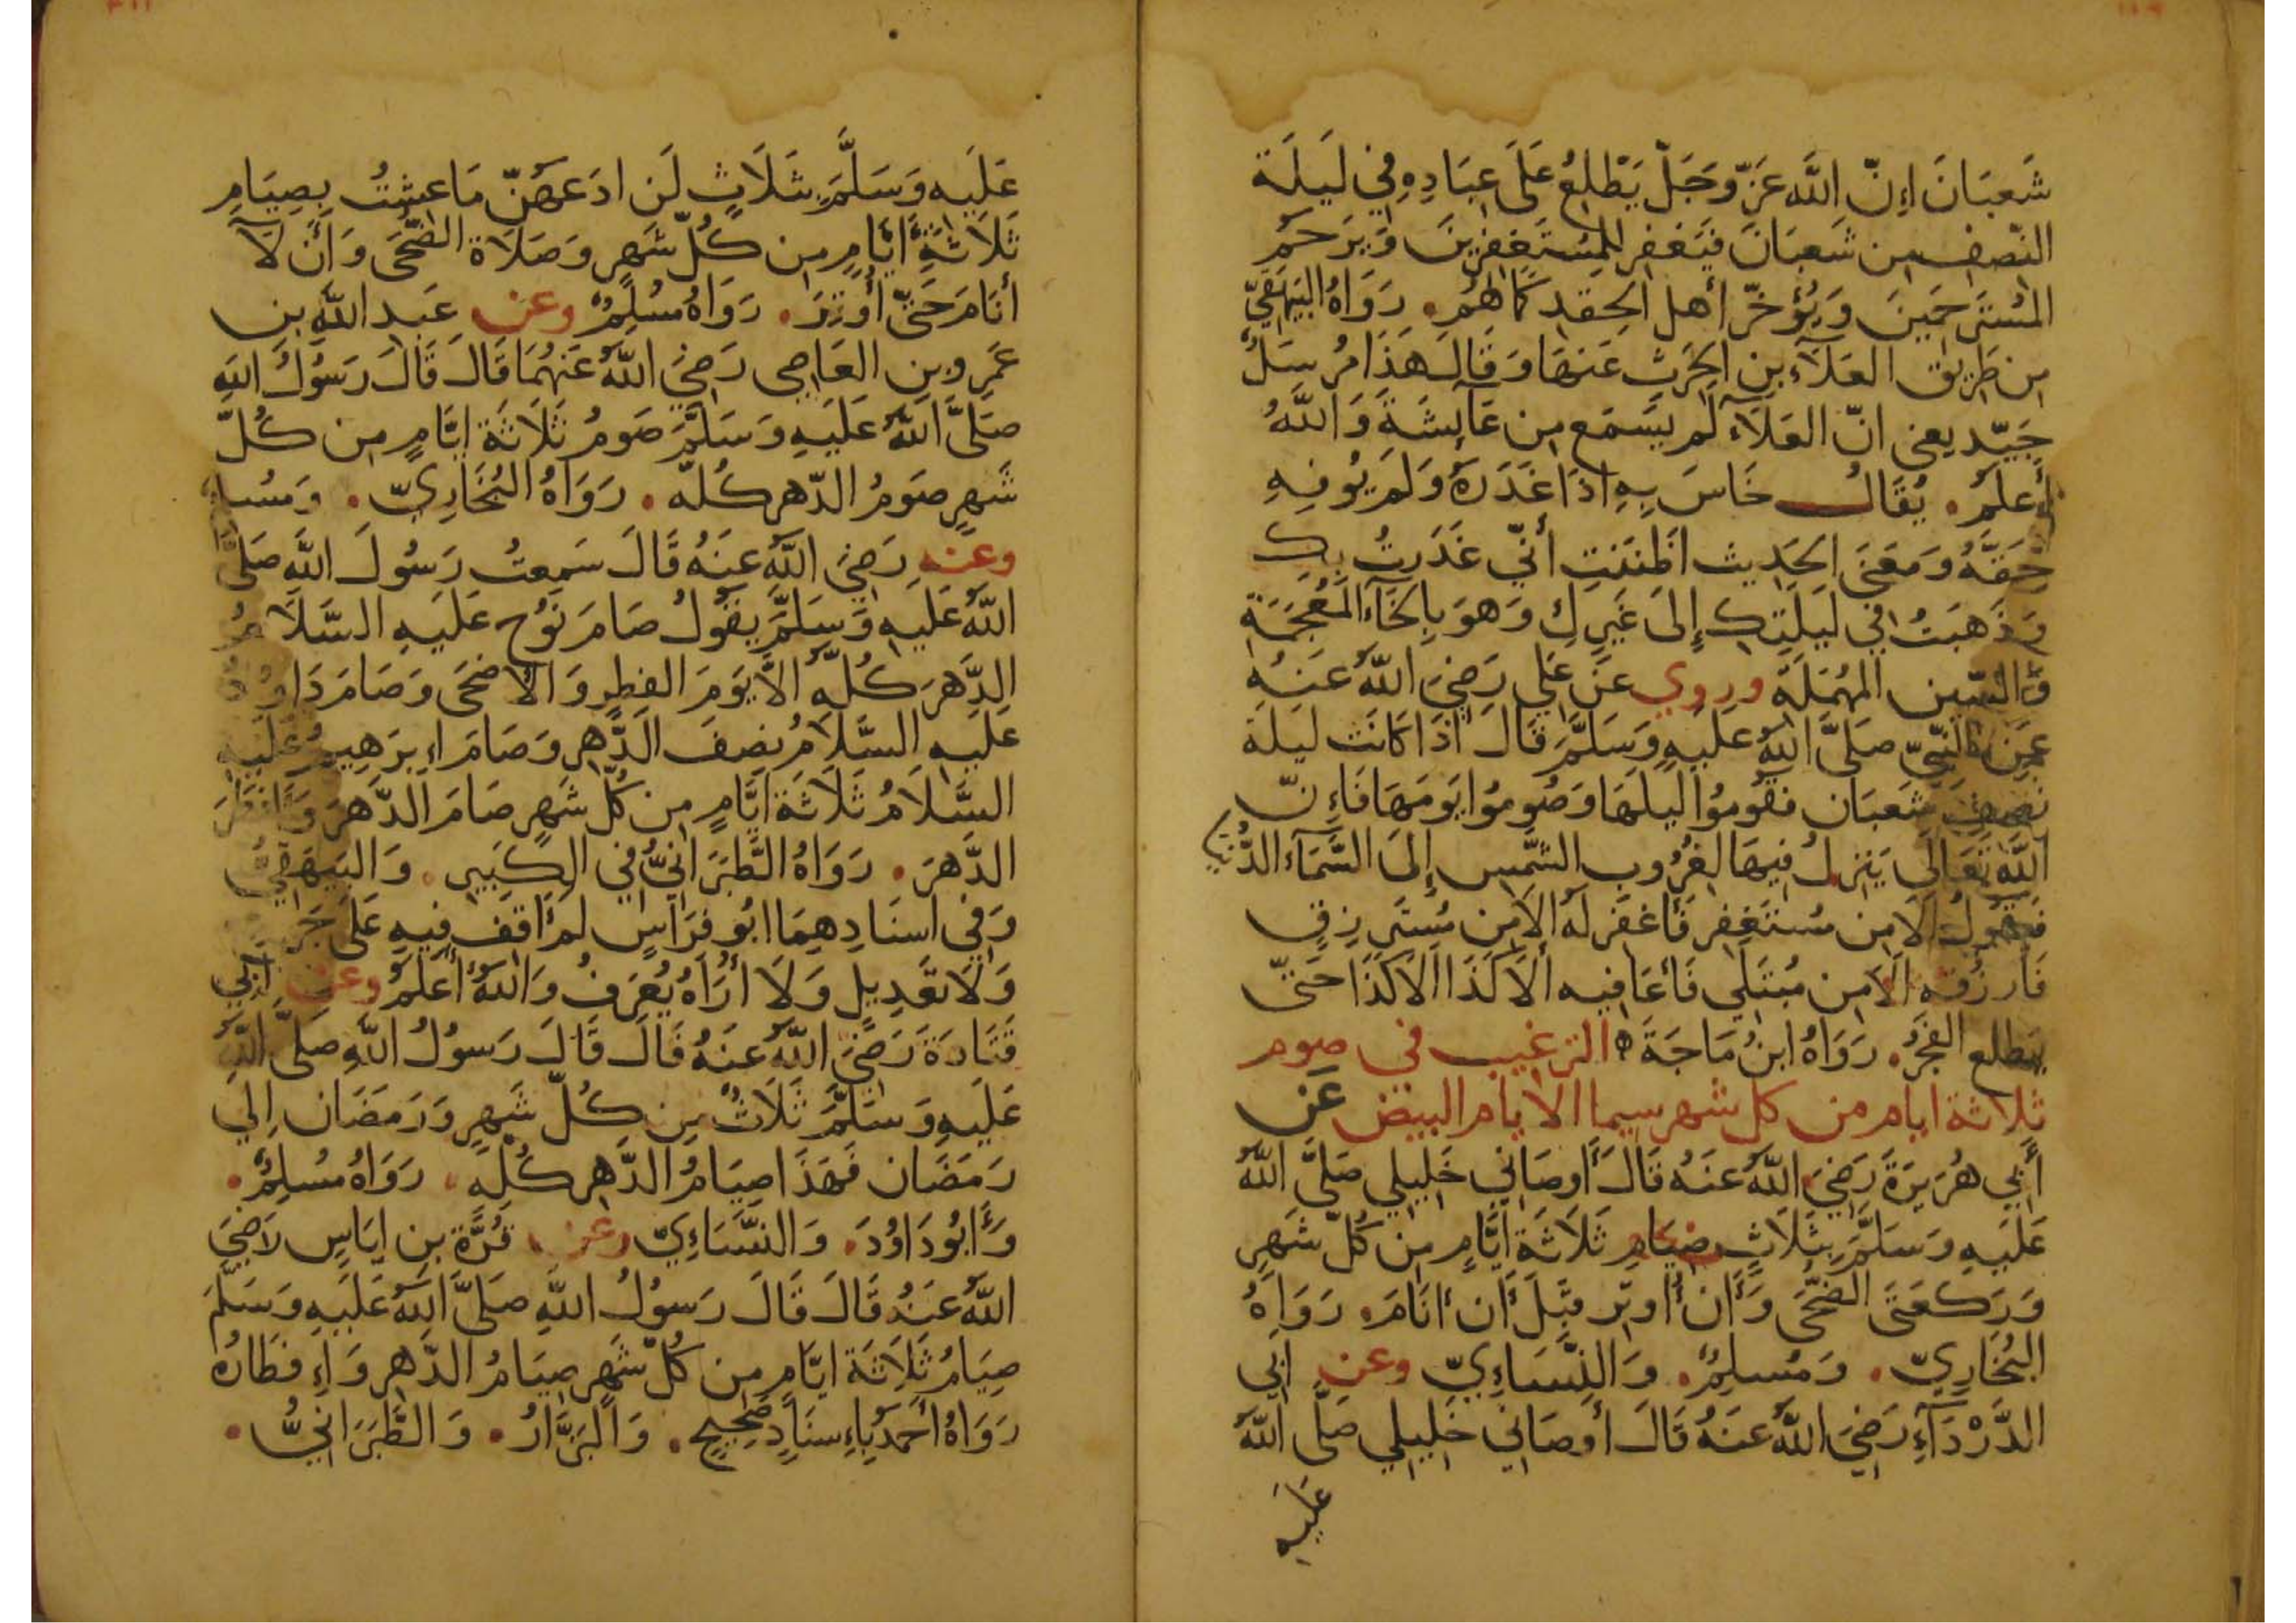 شَعبَانَ اِنّ اللَّه عَزّ وَجَلّ يَطْلِعُ عَلَى عِبَادِهِ فِي لَيلَة
النّصِف مِن شَعبَانَ فيَغفِر لِلمُستَغفِرِينَ وَيَرَحَم
المُستَرحَمِينَ وَيُؤخّر أهل الحِقد كَمَا هُم. رَوَاهُ البَيهَقِيّ
مِن طَرِيق العَلَآءِ بنِ الحَرِثِ عَنهَا وَقَالَ هَذَا مُرسَلٌ
جَيّد يعني انّ العَلَآء لَم يَسَمَع مِن عَآئِشَةَ وَاللَّهُ
أعلَمُ. يُقَالُ خَاسَ بِهِ اذَا غَدَرَهُ وَلَم يُوفِهِ
حَقَّهُ وَمَعنَى الحَدِيث اظَنَنتِ أنّي غَدَرتُ بِك
وَذَهَبتُ فِي لَيلَتِك إِلَى غَيرِكِ وَهوَ بِالخَآءِ المُعجَمَة
وَالسّين المُهمَلَة وروي عَن عَلي رَضِيَ اللَّهُ عَنهُ
عَنِ النَّبيّ صَلَّى اللَّهُ عَلَيهِ وَسَلَّمَ قَالَ اذَا كَانَت لَيلَة
نصف شَعبَان فقُومُوا لَيلَهَا وَصُومُوا يَومَهَا فَإِنّ
اللَّه تَعَالَى يَنزِلُ فِيهَا لغُرُوب الشَّمس إِلَى السَّمَآءِ الدُّنيَا
فيَقولُ الا مِن مُستَغفِر فَأغفَر لَهُ الا مِن مُستَرزِقٍ
فَأرزُقه الَا مِن مُبتَلَي فَأعَافِيه ألَا كَذَا الَا كَذَا حَتّى
يَطلع الفَجرُ. رَوَاهُ ابنُ مَاجَةَ ه الترغيب في صوم
ثلاثة ايام من كل شهر سيما الايام البيض عَن
أَبي هُرَيرَةَ رَضِيَ اللَّهُ عَنهُ قَالَ أوصَانِي خَلِيلِي صَلَّى اللَّهُ
عَلَيهِ وَسَلَّمَ بِثَلَاثٍ صِيَامِ ثَلَاثَة أيَّامٍ مِن كُلّ شَهرٍ
وَرَكعَتَى الضُّحَى وَأَن أُوتِر قَبلَ أَن أنَامَ. رَوَاهُ
البُخَارِيّ. وَمُسلِمٌ. وَالنَّسَاءِيّ وعن أبي
الدَّرْدَآءِ رَضِيَ اللَّهُ عَنهُ قَالَ أوصَانِي خَلِيلِي صَلَّى اللَّهُ
عَلَيهِ
عَلَيهِ وَسَلَّمَ بِثَلَاثٍ لَن ادَعَهُنّ مَا عِشتُ بِصِيَامِ
ثَلَاثَةِ ايَّامٍ مِن كُلّ شَهرٍ وَصَلَاة الضُّحَى وَأَن لَا
أنَامَ حَتّى أُوتِرَ. رَوَاهُ مُسْلِمٌ وعن عَبدِ اللَّهِ بنِ
عَمرِو بنِ العَاصِى رَضِيَ اللَّهُ عَنهُمَا قَالَ قَالَ رَسُولُ اللَّهِ
صَلَّى اللَّهُ عَلَيهِ وَسَلَّمَ صَومُ ثَلَاثَة ايَّامٍ مِن كُلّ
شَهرٍ صَومُ الدّهرِ كُلّه. رَوَاهُ البُخَارِيّ. وَمُسلم
وعنه رَضِيَ اللَّهُ عَنهُ قَالَ سَمِعتُ رَسُولَ اللَّهِ صَلَّى
اللَّهُ عَلَيهِ وَسَلَّمَ يقُولُ صَامَ نُوح عَلَيهِ السَّلَامُ
الدَّهرَ كُلّه الَّا يَومَ الفِطرِ وَالاضحَى وَصَامَ دَاوُدُ
عَلَيهِ السَّلَامُ نِصفَ الدَّهرِ وَصَامَ اِبرَهِيمُ عَلَيهِ
السَّلَامُ ثَلَاثَة ايَّامٍ مِن كُلّ شَهرٍ صَامَ الدَّهرَ وَأفطَرَ
الدَّهرَ. رَوَاهُ الطَّبَرَانيُّ فِي الكَبِيرِ. وَالبَيهَقِيُّ
وَفِي اسنَادِهِمَا ابُو فِرَاسٍ لَم أقِف فِيهِ عَلَى جَرح
وَلَا تَعدِيلٍ وَلَا أرَاهُ يُعرَفُ وَاللَّهُ أعلَمُ وعن أبي
قَتَادَةَ رَضِيَ اللَّهُ عَنهُ قَالَ قَالَ رَسُولُ اللَّهِ صَلَّى اللَّهُ
عَلَيهِ وَسَلَّمَ ثَلَاثٌ مِن كُلّ شَهرٍ وَرَمَضَان اِلي
رَمَضَان فَهَذَا صِيَامُ الدَّهرِ كُلّهِ. رَوَاهُ مُسلِمٌ.
وَأَبُودَاوُدَ. وَالنَّسَاءِيّ وعن قُرَّة بنِ ايَاسٍ رَضِيَ
اللَّهُ عَنهُ قَالَ قَالَ رَسُولُ اللَّهِ صَلَّى اللَّهُ عَلَيهِ وَسَلَّمَ
صِيَامُ ثَلَاثَة ايَّامٍ مِن كُلّ شَهرٍ صِيَامُ الدَّهرِ وَاِفطَارُه
رَوَاهُ أحمَدُ بِاِسنَادٍ صَحِيحٍ. وَالبَزَّارُ. وَالطَّبَرَانيُّ.